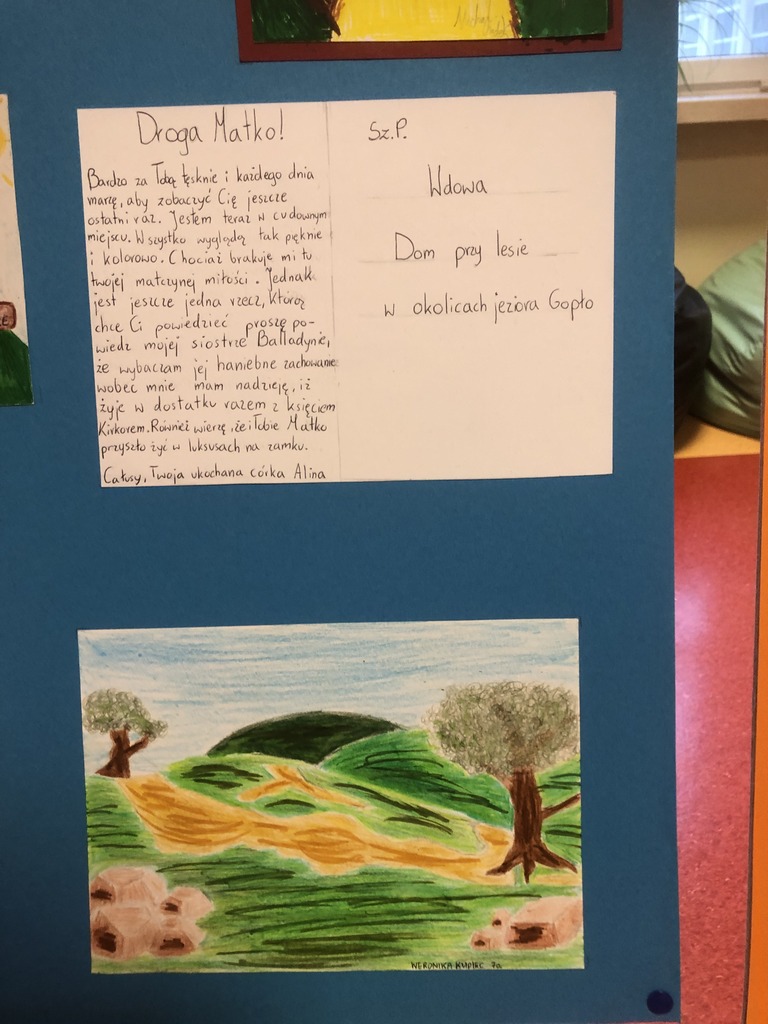 Droga Matko!
Bardzo za Tobą tęsknie i każdego dnia
marzę, aby zobaczyć Cię jeszcze
ostatni raz. Jestem teraz w cudownym
miejscu. Wszystko wygląda tak pięknie
i kolorowo. Chociaż brakuje mi tu
twojej matczynej miłości. Jednak
jest jeszcze jedna rzecz, którą
chce Ci powiedzieć proszę po-
wiedz mojej siostrze Balladynie,
że wybaczam jej haniebne zachowanie
wobec mnie mam nadzieję, iż
żyje w dostatku razem z księciem
Kirkorem. Również wierzę, że i Tobie Matko
przyszło żyć w luksusach na zamku.
Całusy, Twoja ukochana córka Alina
Sz.P.
Wdowa
Dom przy lesie
w okolicach jeziora Gopło
WERONIKA 7a